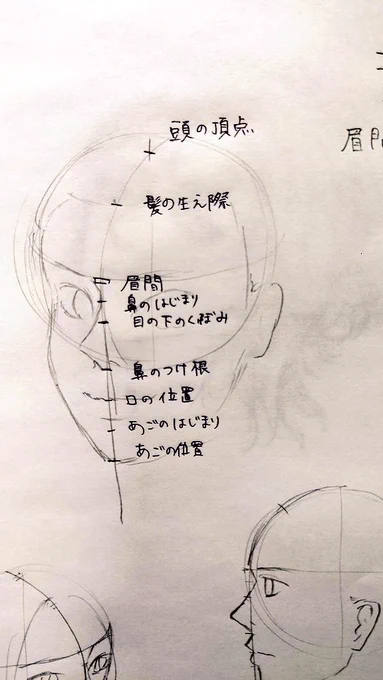 頭の頂点
髪の生え際
眉間
鼻のはじまり
目の下のくぼみ
鼻のつけ根
口の位置
あごのはじまり
あごの位置
眉間